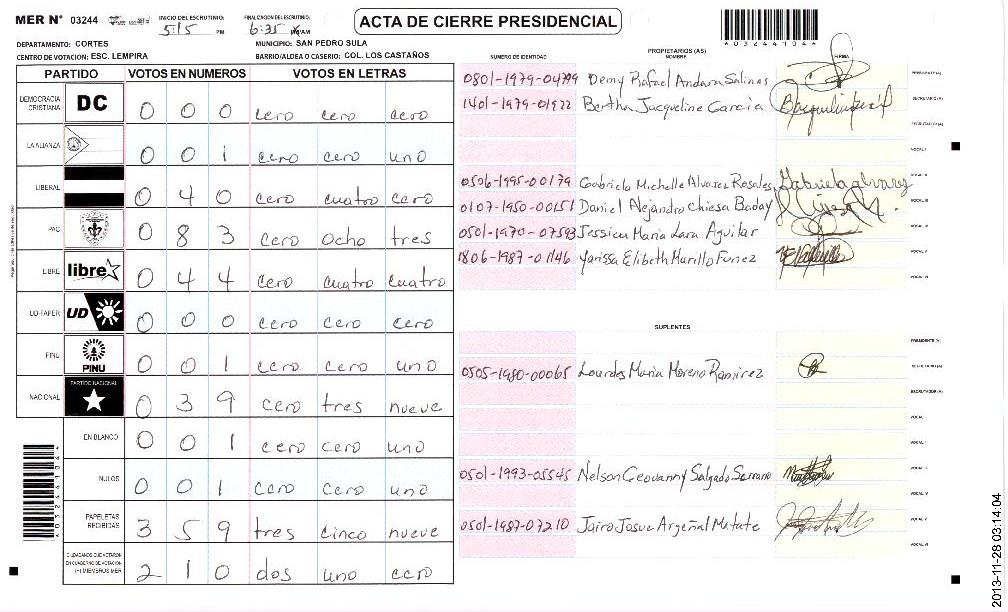 MER Nº 03244 INICIO DEL ESCRUTINIO: 5:15 PM FINALIZACION DEL ESCRUTINIO: 6:35 AM
ACTA DE CIERRE PRESIDENCIAL
03244104
DEPARTAMENTO: CORTES MUNICIPIO: SAN PEDRO SULA
CENTRO DE VOTACION: ESC. LEMPIRA BARRIO/ALDEA O CASERIO: COL. LOS CASTAÑOS
PARTIDO VOTOS EN NUMEROS VOTOS EN LETRAS
DEMOCRACIA CRISTIANA DC 0 0 0 cero cero cero
LA ALIANZA 0 0 1 cero cero uno
LIBERAL 0 4 0 cero cuatro cero
PAC 0 8 3 cero ocho tres
LIBRE libre 0 4 4 cero cuatro cuatro
UD-FAPER UD 0 0 0 cero cero cero
PINU PINU 0 0 1 cero cero uno
NACIONAL PARTIDO NACIONAL 0 3 9 cero tres nueve
EN BLANCO 0 0 1 cero cero uno
NULOS 0 0 1 cero cero uno
PAPELETAS RECIBIDAS 3 5 9 tres cinco nueve
CIUDADANOS QUE VOTARON EN CUADERNO DE VOTACION (+) MIEMBROS MER 2 1 0 dos uno cero
PROPIETARIOS (AS)
NUMERO DE IDENTIDAD NOMBRE FIRMA
0801-1979-04799 Demy Rafael Andara Salinas PRESIDENTE (A)
1401-1979-01922 Bertha Jacqueline Garcia SECRETARIO (A)
ESCRUTADOR (A)
VOCAL I
0506-1995-00179 Gabriela Michelle Alvarez Rosales Gabriela alvarez VOCAL II
0107-1950-00151 Daniel Alejandro Chiesa Baday VOCAL III
0501-1970-07593 Jessica Maria Lara Aguilar VOCAL IV
1806-1987-01146 Yarissa Elibeth Murillo Funez VOCAL V
VOCAL VI
SUPLENTES
PRESIDENTE (A)
0505-1980-00065 Lourdes Maria Moreno Ramirez SECRETARIO (A)
ESCRUTADOR (A)
VOCAL
VOCAL I
0501-1993-05545 Nelson Geovanny Salgado Serrano
VOCAL IV
0501-1987-07210 Jairo Josue Argeñal Matute VOCAL V
VOCAL VI
2013-11-28 03:14:04